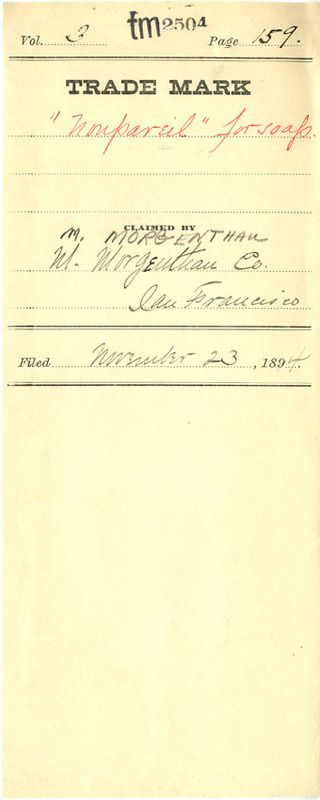 tm2504
Vol. 3 Page 159.
TRADE MARK
"Nonpareil" for soaps.
CLAIMED BY
M. MORGENTHAU
M. Morgenthau Co.
San Francisco
Filed November 23, 1894.